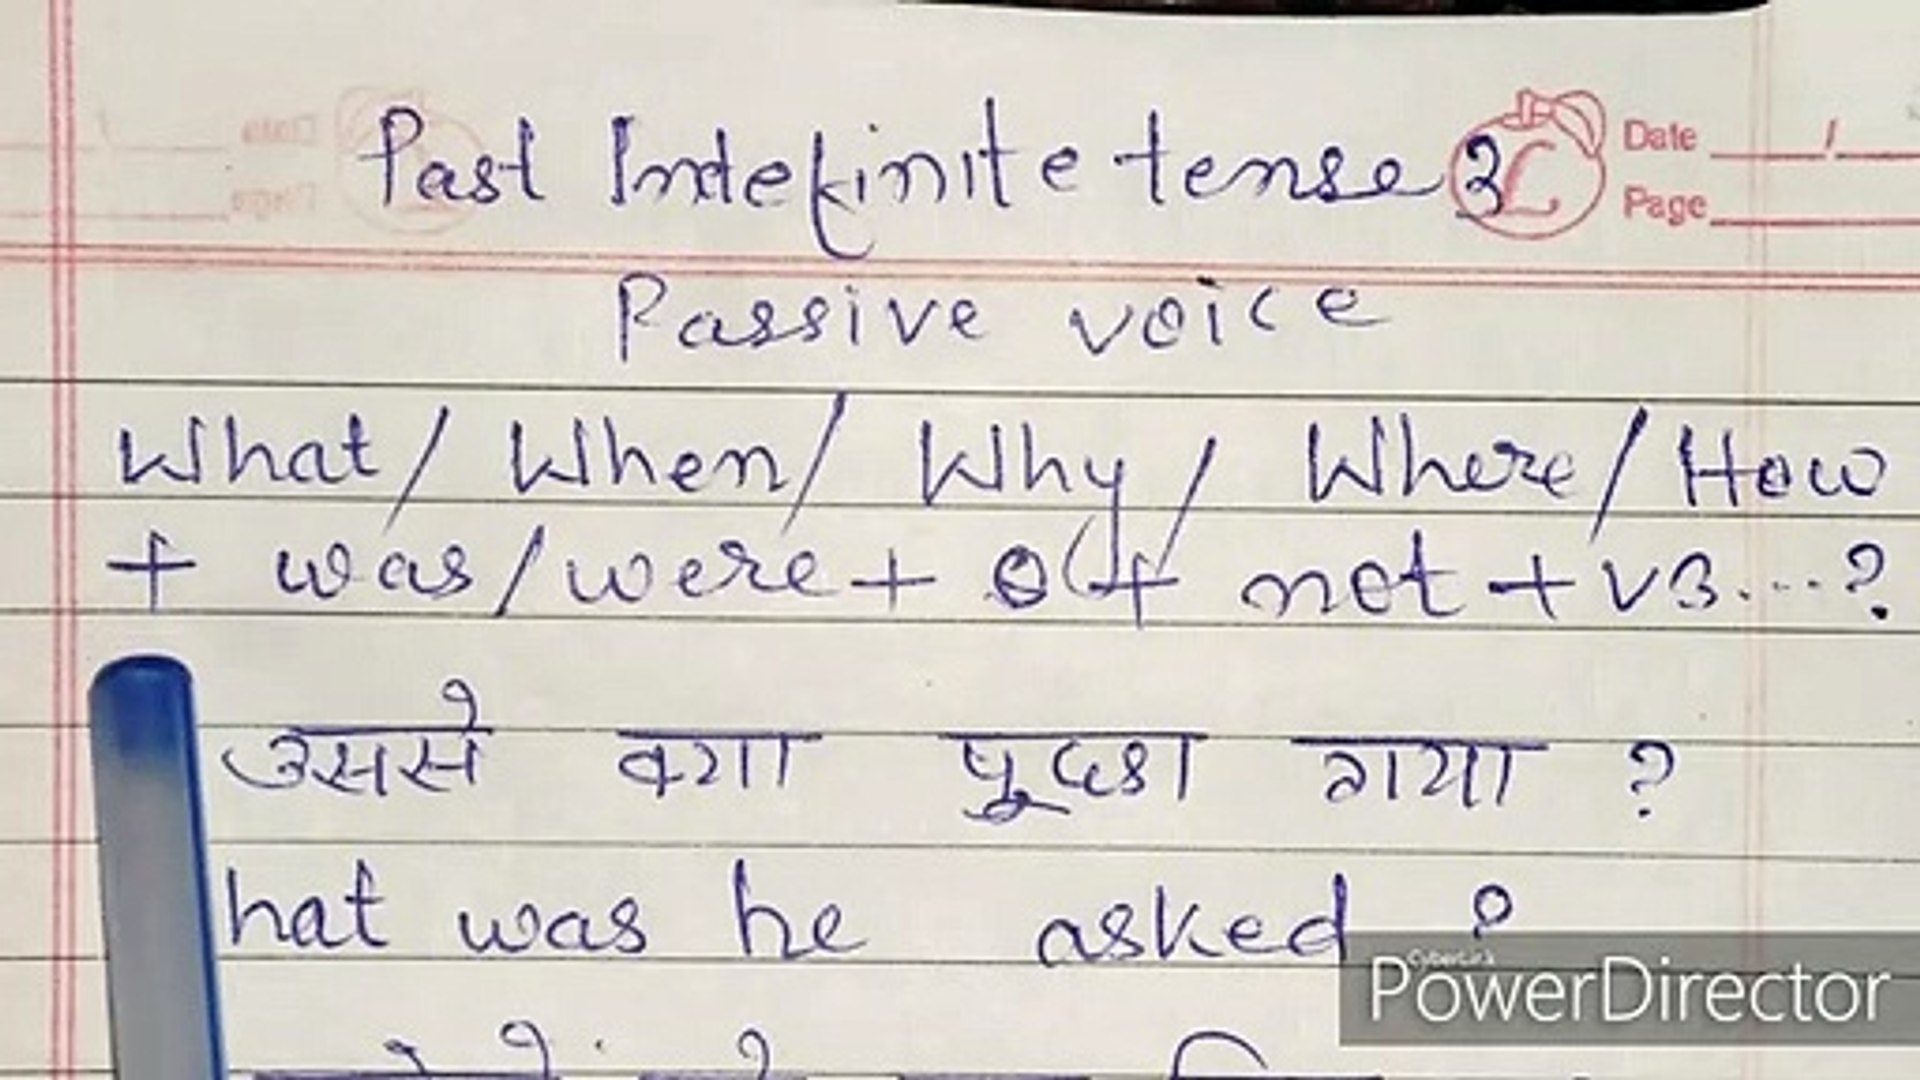 Past Indefinite tense 3
Date
Page
Passive voice
What/ When/ Why/ Where/ How
+ was/were + o + not + v3....?
उससे क्या पूछा गया ?
hat was he asked ?
CyberLink
PowerDirector